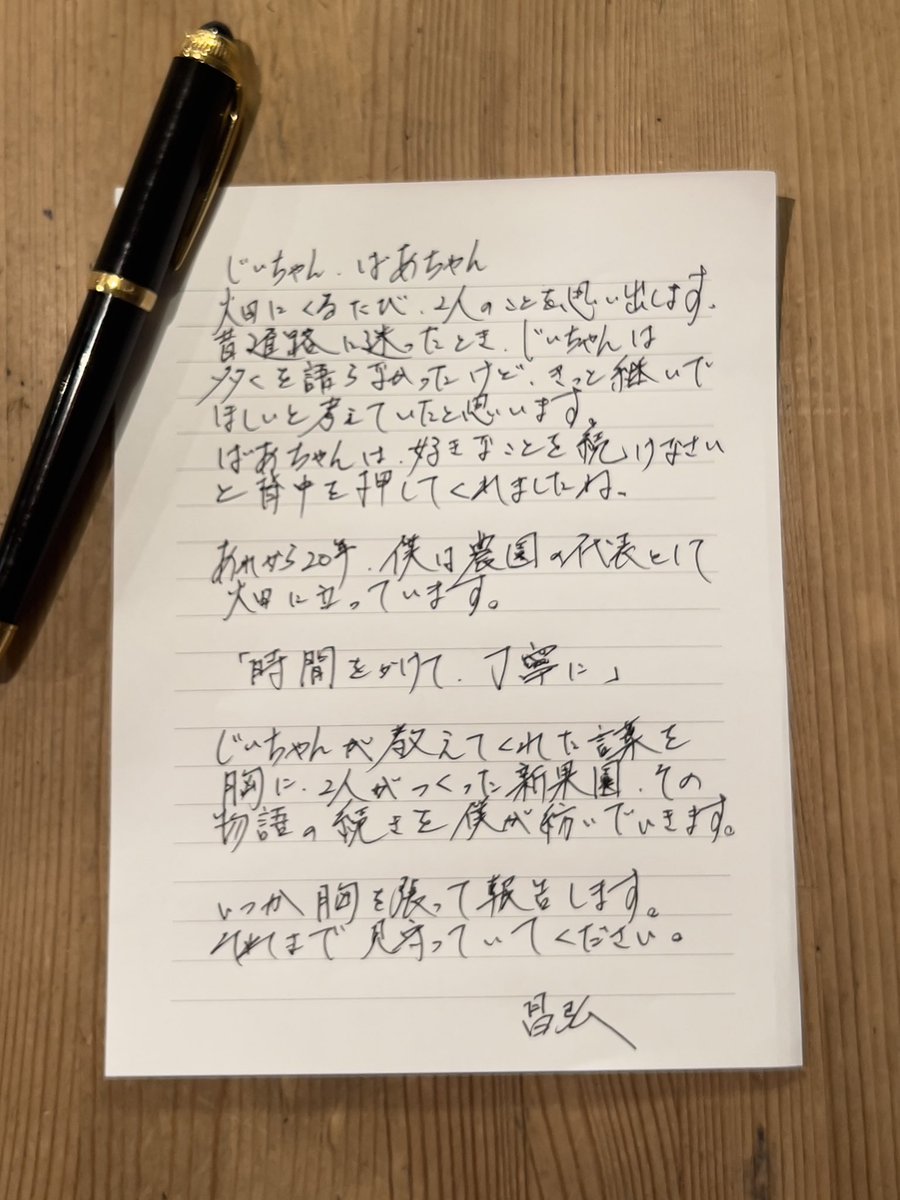 じいちゃん、ばあちゃん
畑にくるたび、2人のことを思い出します。
昔進路に迷ったとき、じいちゃんは
多くを語らなかったけど、きっと継いで
ほしいと考えていたと思います。
ばあちゃんは、好きなことを続けなさい
と背中を押してくれましたね。
あれから20年、僕は農園の代表として
畑に立っています。
「時間をかけて、丁寧に」
じいちゃんが教えてくれた言葉を
胸に、2人がつくった新果園、その
物語の続きを僕が紡いでいきます。
いつか胸を張って報告します。
それまで見守っていてください。
昌弘